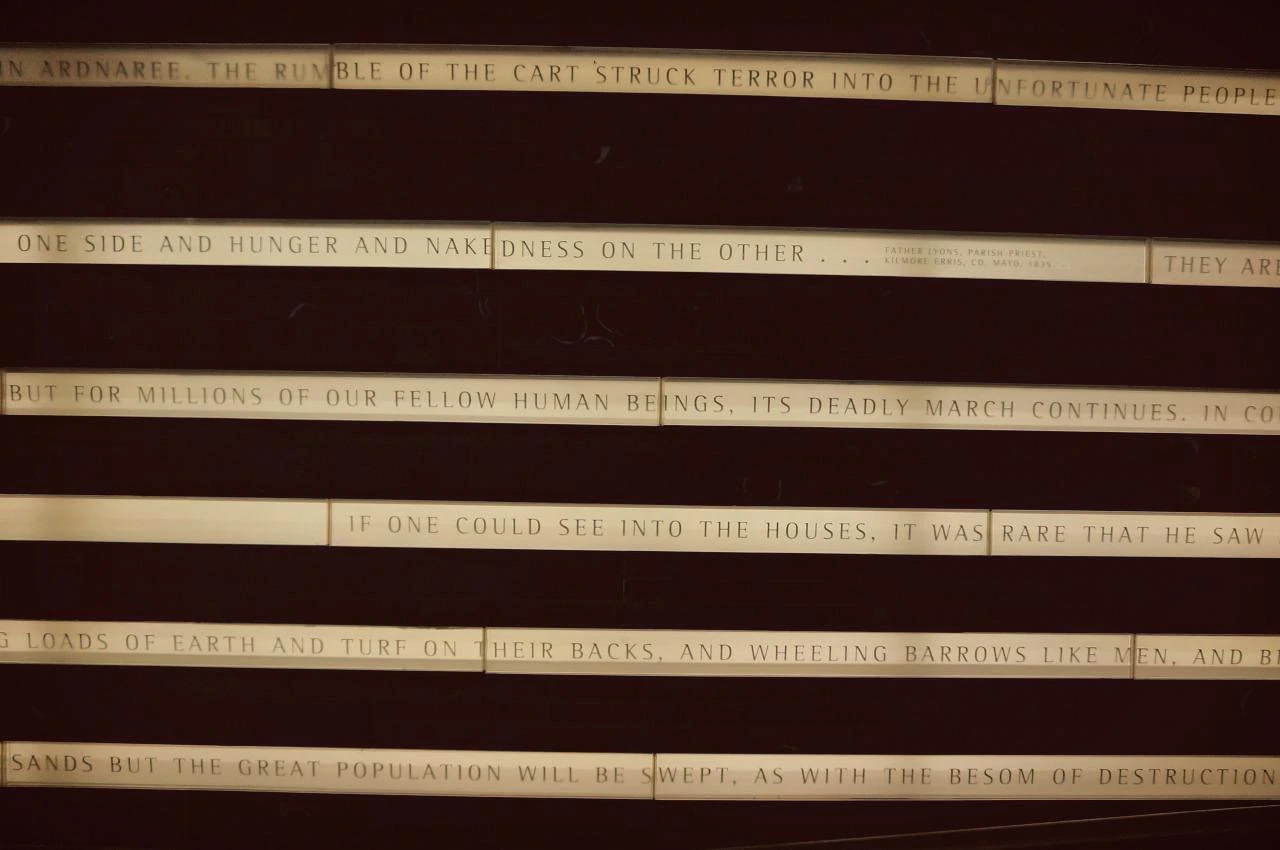 IN ARDNAREE. THE RUMBLE OF THE CART STRUCK TERROR INTO THE UNFORTUNATE PEOPLE
ONE SIDE AND HUNGER AND NAKEDNESS ON THE OTHER . . . 
FATHER LYONS, PARISH PRIEST,
KILMORE ERRIS, CO. MAYO, 1835.
THEY ARE
BUT FOR MILLIONS OF OUR FELLOW HUMAN BEINGS, ITS DEADLY MARCH CONTINUES. IN CO
IF ONE COULD SEE INTO THE HOUSES, IT WAS RARE THAT HE SAW
G LOADS OF EARTH AND TURF ON THEIR BACKS, AND WHEELING BARROWS LIKE MEN, AND B
SANDS BUT THE GREAT POPULATION WILL BE SWEPT, AS WITH THE BESOM OF DESTRUCTION